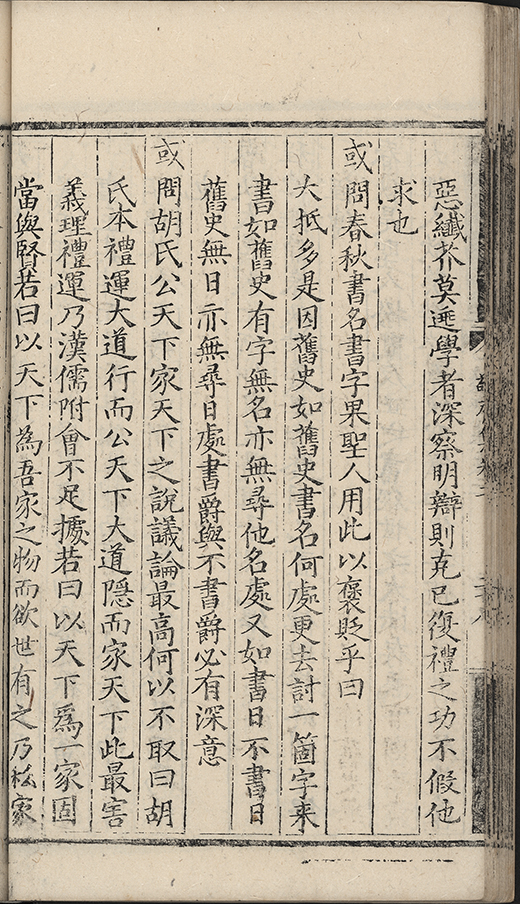 惡纖芥莫遯學者深察明辯則克已復禮之功不假他
求也
或問春秋書名書字果聖人用此以褒貶乎曰
大抵多是因舊史如舊史書名何處更去討一箇字来
書如舊史有字無名亦無尋他名處又如書日不書日
舊史無日亦無尋日處書爵與不書爵必有深意
或問胡氏公天下家天下之說議論最高何以不取曰胡
氏本禮運大道行而公天下大道隱而家天下此最害
義理禮運乃漢儒附會不足據若曰以天下爲一家固
當與賢若曰以天下為吾家之物而欲世有之乃私家